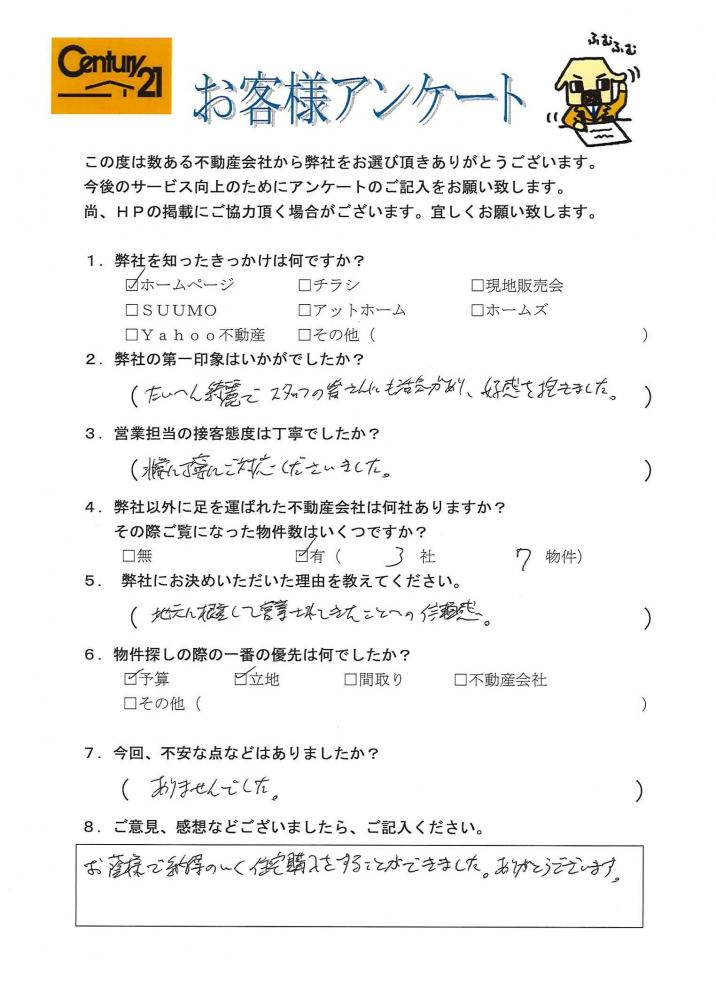 Century 21
ふむふむ
お客様アンケート
この度は数ある不動産会社から弊社をお選び頂きありがとうございます。
今後のサービス向上のためにアンケートのご記入をお願い致します。
尚、HPの掲載にご協力頂く場合がございます。宜しくお願い致します。
1．弊社を知ったきっかけは何ですか？
☑ホームページ □チラシ □現地販売会
□SUUMO □アットホーム □ホームズ
□Yahoo不動産 □その他（ ）
2．弊社の第一印象はいかがでしたか？
（たいへん綺麗で スタッフの皆さんにも活気があり、好感を抱きました。）
3．営業担当の接客態度は丁寧でしたか？
（非常に丁寧にご対応くださいました。）
4．弊社以外に足を運ばれた不動産会社は何社ありますか？
その際ご覧になった物件数はいくつですか？
□無 ☑有（ 3 社 7 物件）
5． 弊社にお決めいただいた理由を教えてください。
（地元に根差して営業されてきたことへの信頼感。）
6．物件探しの際の一番の優先は何でしたか？
☑予算 ☑立地 □間取り □不動産会社
□その他（ ）
7．今回、不安な点などはありましたか？
（ありませんでした。）
8．ご意見、感想などございましたら、ご記入ください。
お蔭様で納得のいく住宅購入をすることができました。ありがとうございます。